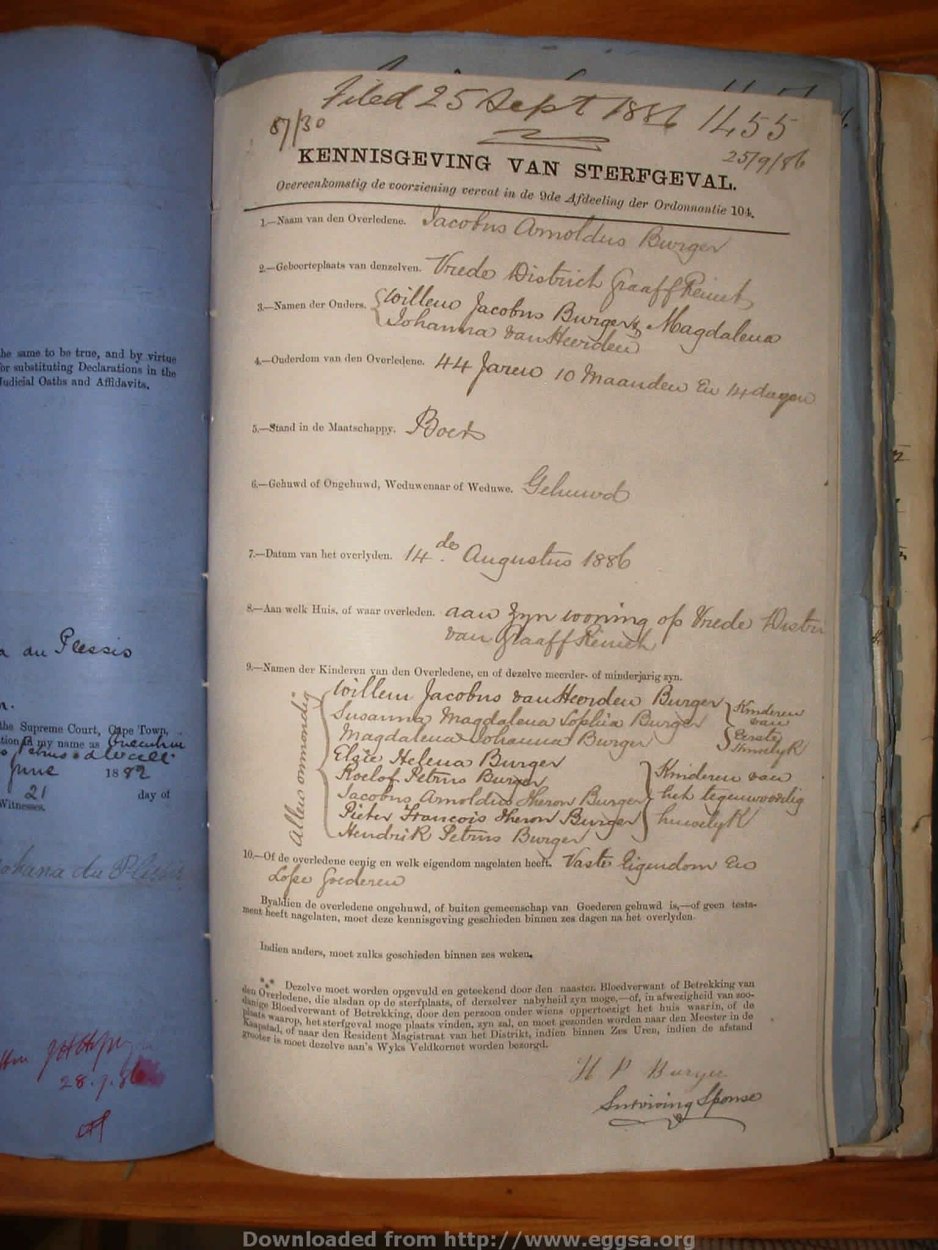 he same to be true, and by virtue
or substituting Declarations in the
Judicial Oaths and Affidavits.
a du Plessis
the Supreme Court, Cape Town,
my name as
June 1882
21 day of
Witnesses.
Johana du Plessis
28.7.86
Filed 25 Sept 1886 1455
87/30
25/9/86
KENNISGEVING VAN STERFGEVAL.
Overeenkomstig de voorziening vervat in de 9de Afdeeling der Ordonnantie 104.
1.—Naam van den Overledene. Jacobus Arnoldus Burger
2.—Geboorteplaats van denzelven. Vrede District Graaff Reinet
3.—Namen der Ouders. Willem Jacobus Burger & Magdalena
Johanna van Heerden
4.—Ouderdom van den Overledene. 44 Jaren 10 Maanden En 14 dagen
5.—Stand in de Maatschappy. Boer
6.—Gehuwd of Ongehuwd, Weduwenaar of Weduwe. Gehuwd
7.—Datum van het overlyden. 14de Augustus 1886
8.—Aan welk Huis, of waar overleden. aan Zyn woning op Vrede Distri
van Graaff Reinet
9.—Namen der Kinderen van den Overledene, en of dezelve meerder- of minderjarig zyn.
Allen onmondig
Willem Jacobus van Heerden Burger
Susanna Magdalena Sophia Burger
Magdalena Johanna Burger
Kinderen
van
Eerste
Huwelyk
Elsie Helena Burger
Roelof Petrus Burger
Jacobus Arnoldus Theron Burger
Pieter Francois Theron Burger
Hendrik Petrus Burger
Kinderen van
het tegenwoordig
huwelyk
10.—Of de overledene eenig en welk eigendom nagelaten heeft. Vaste Eigendom En
Losse Goederen
Byaldien de overledene ongehuwd, of buiten gemeenschap van Goederen gehuwd is,—of geen testa-
ment heeft nagelaten, moet deze kennisgeving geschieden binnen zes dagen na het overlyden.
Indien anders, moet zulks geschieden binnen zes weken.
⁂ Dezelve moet worden opgevuld en geteekend door den naasten Bloedverwant of Betrekking van
den Overledene, die alsdan op de sterfplaats, of derzelver nabyheid zyn moge,—of, in afwezigheid van zoo-
danige Bloedverwant of Betrekking, door den persoon onder wiens oppertoezigt het huis waarin, of de
plaats waarop, het sterfgeval moge plaats vinden, zyn zal, en moet gezonden worden naar den Meester in de
Kaapstad, of naar den Resident Magistraat van het Distrikt, indien binnen Zes Uren, indien de afstand
grooter is moet dezelve aan's Wyks Veldkornet worden bezorgd.
H P Burger
Surviving Spouse
Downloaded from http://www.eggsa.org